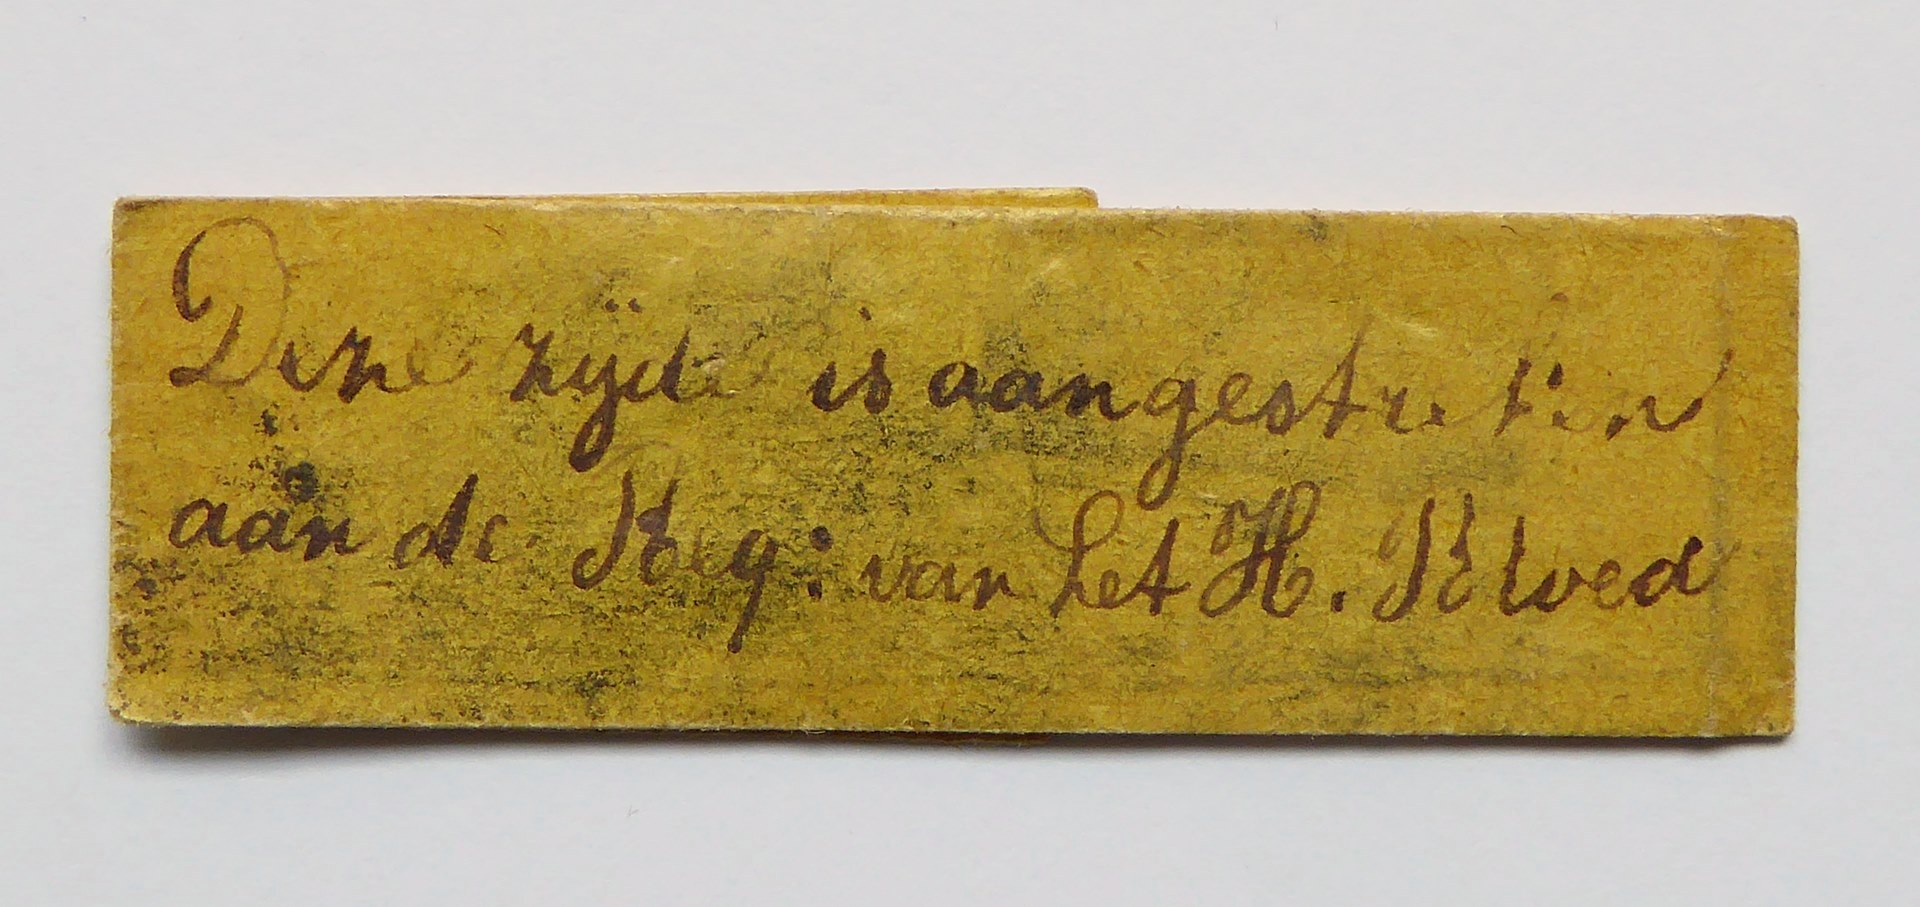 Deze zijde is aangestreken
aan de Req: van het H. Bloed